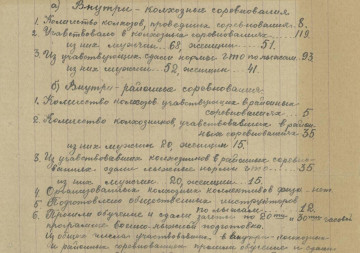 а) Внутри-колхозные соревнования
1. Количество колхозов, проводивш. соревнования 8.
2. Участвовало в колхозных соревнованиях 119
из них мужчин 68, женщин 51.
3. Из участвующих сдали нормы ГТО по лыжам 93
из них мужчин 52, женщин 41.
б) Внутри-районные соревнования
1. Количество колхозов участвующих в районных
соревнованиях 5
2. Количество колхозников, участвовавших в район-
ных соревнованиях 35
из них мужчин 20, женщин 15.
3. Из участвовавших колхозников в районных соревно-
ваниях сдали лыжные нормы ГТО 35
из них мужчин 20, женщин 15.
4. колхозных коллективов
5. Подготовлено общественных инструкторов
по лыжам 12.
6. Прошли обучение и сдали зачеты по 20ти и 30ти часовой
программе военно-лыжной подготовки.
Из общего числа участвовавших в внутри-колхозных
и районных соревнованиях прошли обучение и сдали